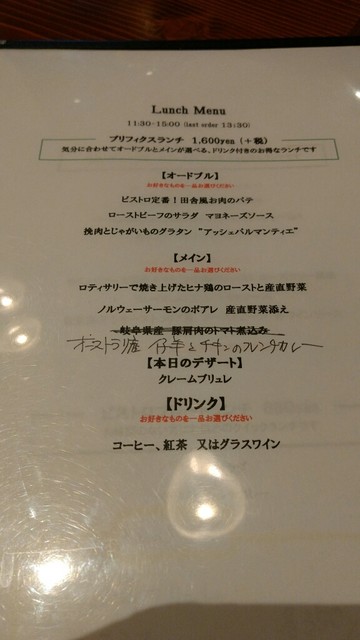 Lunch Menu
11:30-15:00 (last order 13:30)
プリフィクスランチ 1,600yen (+税)
気分に合わせてオードブルとメインが選べる、ドリンク付きのお得なランチです
【オードブル】
お好きなものを一品お選びください
ビストロ定番！田舎風お肉のパテ
ローストビーフのサラダ マヨネーズソース
挽肉とじゃがいものグラタン “アッシェパルマンティエ”
【メイン】
お好きなものを一品お選びください
ロティサリーで焼き上げたヒナ鶏のローストと産直野菜
ノルウェーサーモンのポアレ 産直野菜添え
岐阜県産 豚肩肉のトマト煮込み
オーストラリア産 仔羊とチキンのフレンチカレー
【本日のデザート】
クレームブリュレ
【ドリンク】
お好きなものを一品お選びください
コーヒー、紅茶 又はグラスワイン